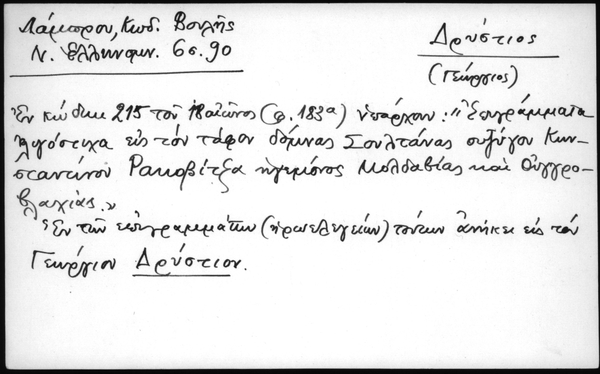 Λάμπρου, Κωδ. Βουλῆς
Ν. Ἑλληνομν. 6 σ. 90
Δρύστιος
(Γεώργιος)
Ἐν κώδικι 215 τοῦ αἰῶνος (φ. 183α) ὑπάρχουν: "Ἐπιγράμματα
ὀλιγόστιχα εἰς τὸν τάφον δόμνας Σουλτάνας συζύγου Κων-
σταντίνου Ρακοβίτζα ἡγεμόνος Μολδαβίας καὶ Οὐγγρο-
βλαχίας."
Ἓν τῶν ἐπιγραμμάτων (ἡρωελεγείων) τούτων ἀνήκει εἰς τὸν
Γεώργιον Δρύστιον.